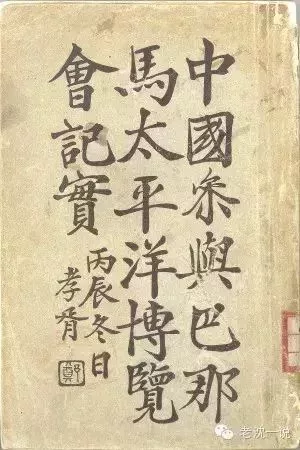 中國叅與巴那
馬太平洋博覽
會記實
丙辰冬日
孝胥
鄭
老沈一说